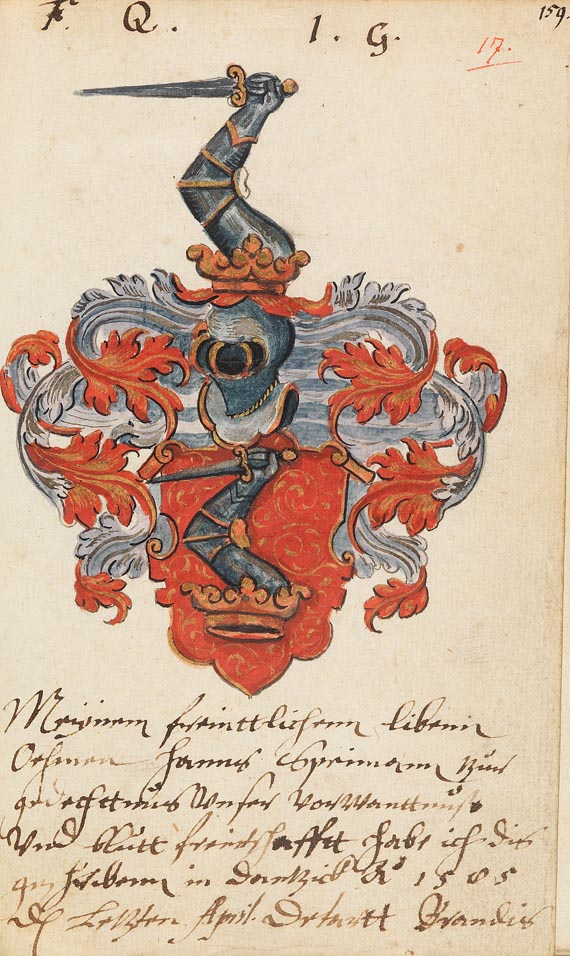 F. Q. 1. G.
159.
17.
Meyinem freinttlichenn libenn
Oehmen Hanns Speimann zur
gedechttnus Unser Vorwanttnus
Und blutt freintschafft habe ich dis
geschribenn in dantzick A° 1585
Letzten April. Detartt Brandis